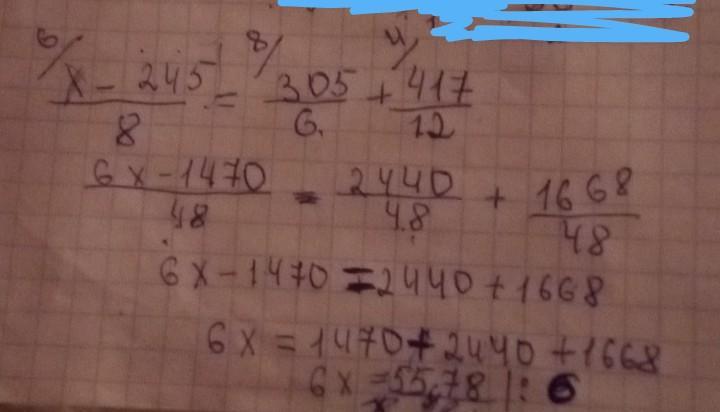 6/ 8/ 4/
x - 245 / 8 = 305 / 6 + 417 / 12
6x - 1470 / 48 = 2440 / 48 + 1668 / 48
6x - 1470 = 2440 + 1668
6x = 1470 + 2440 + 1668
6x = 5578 | : 6